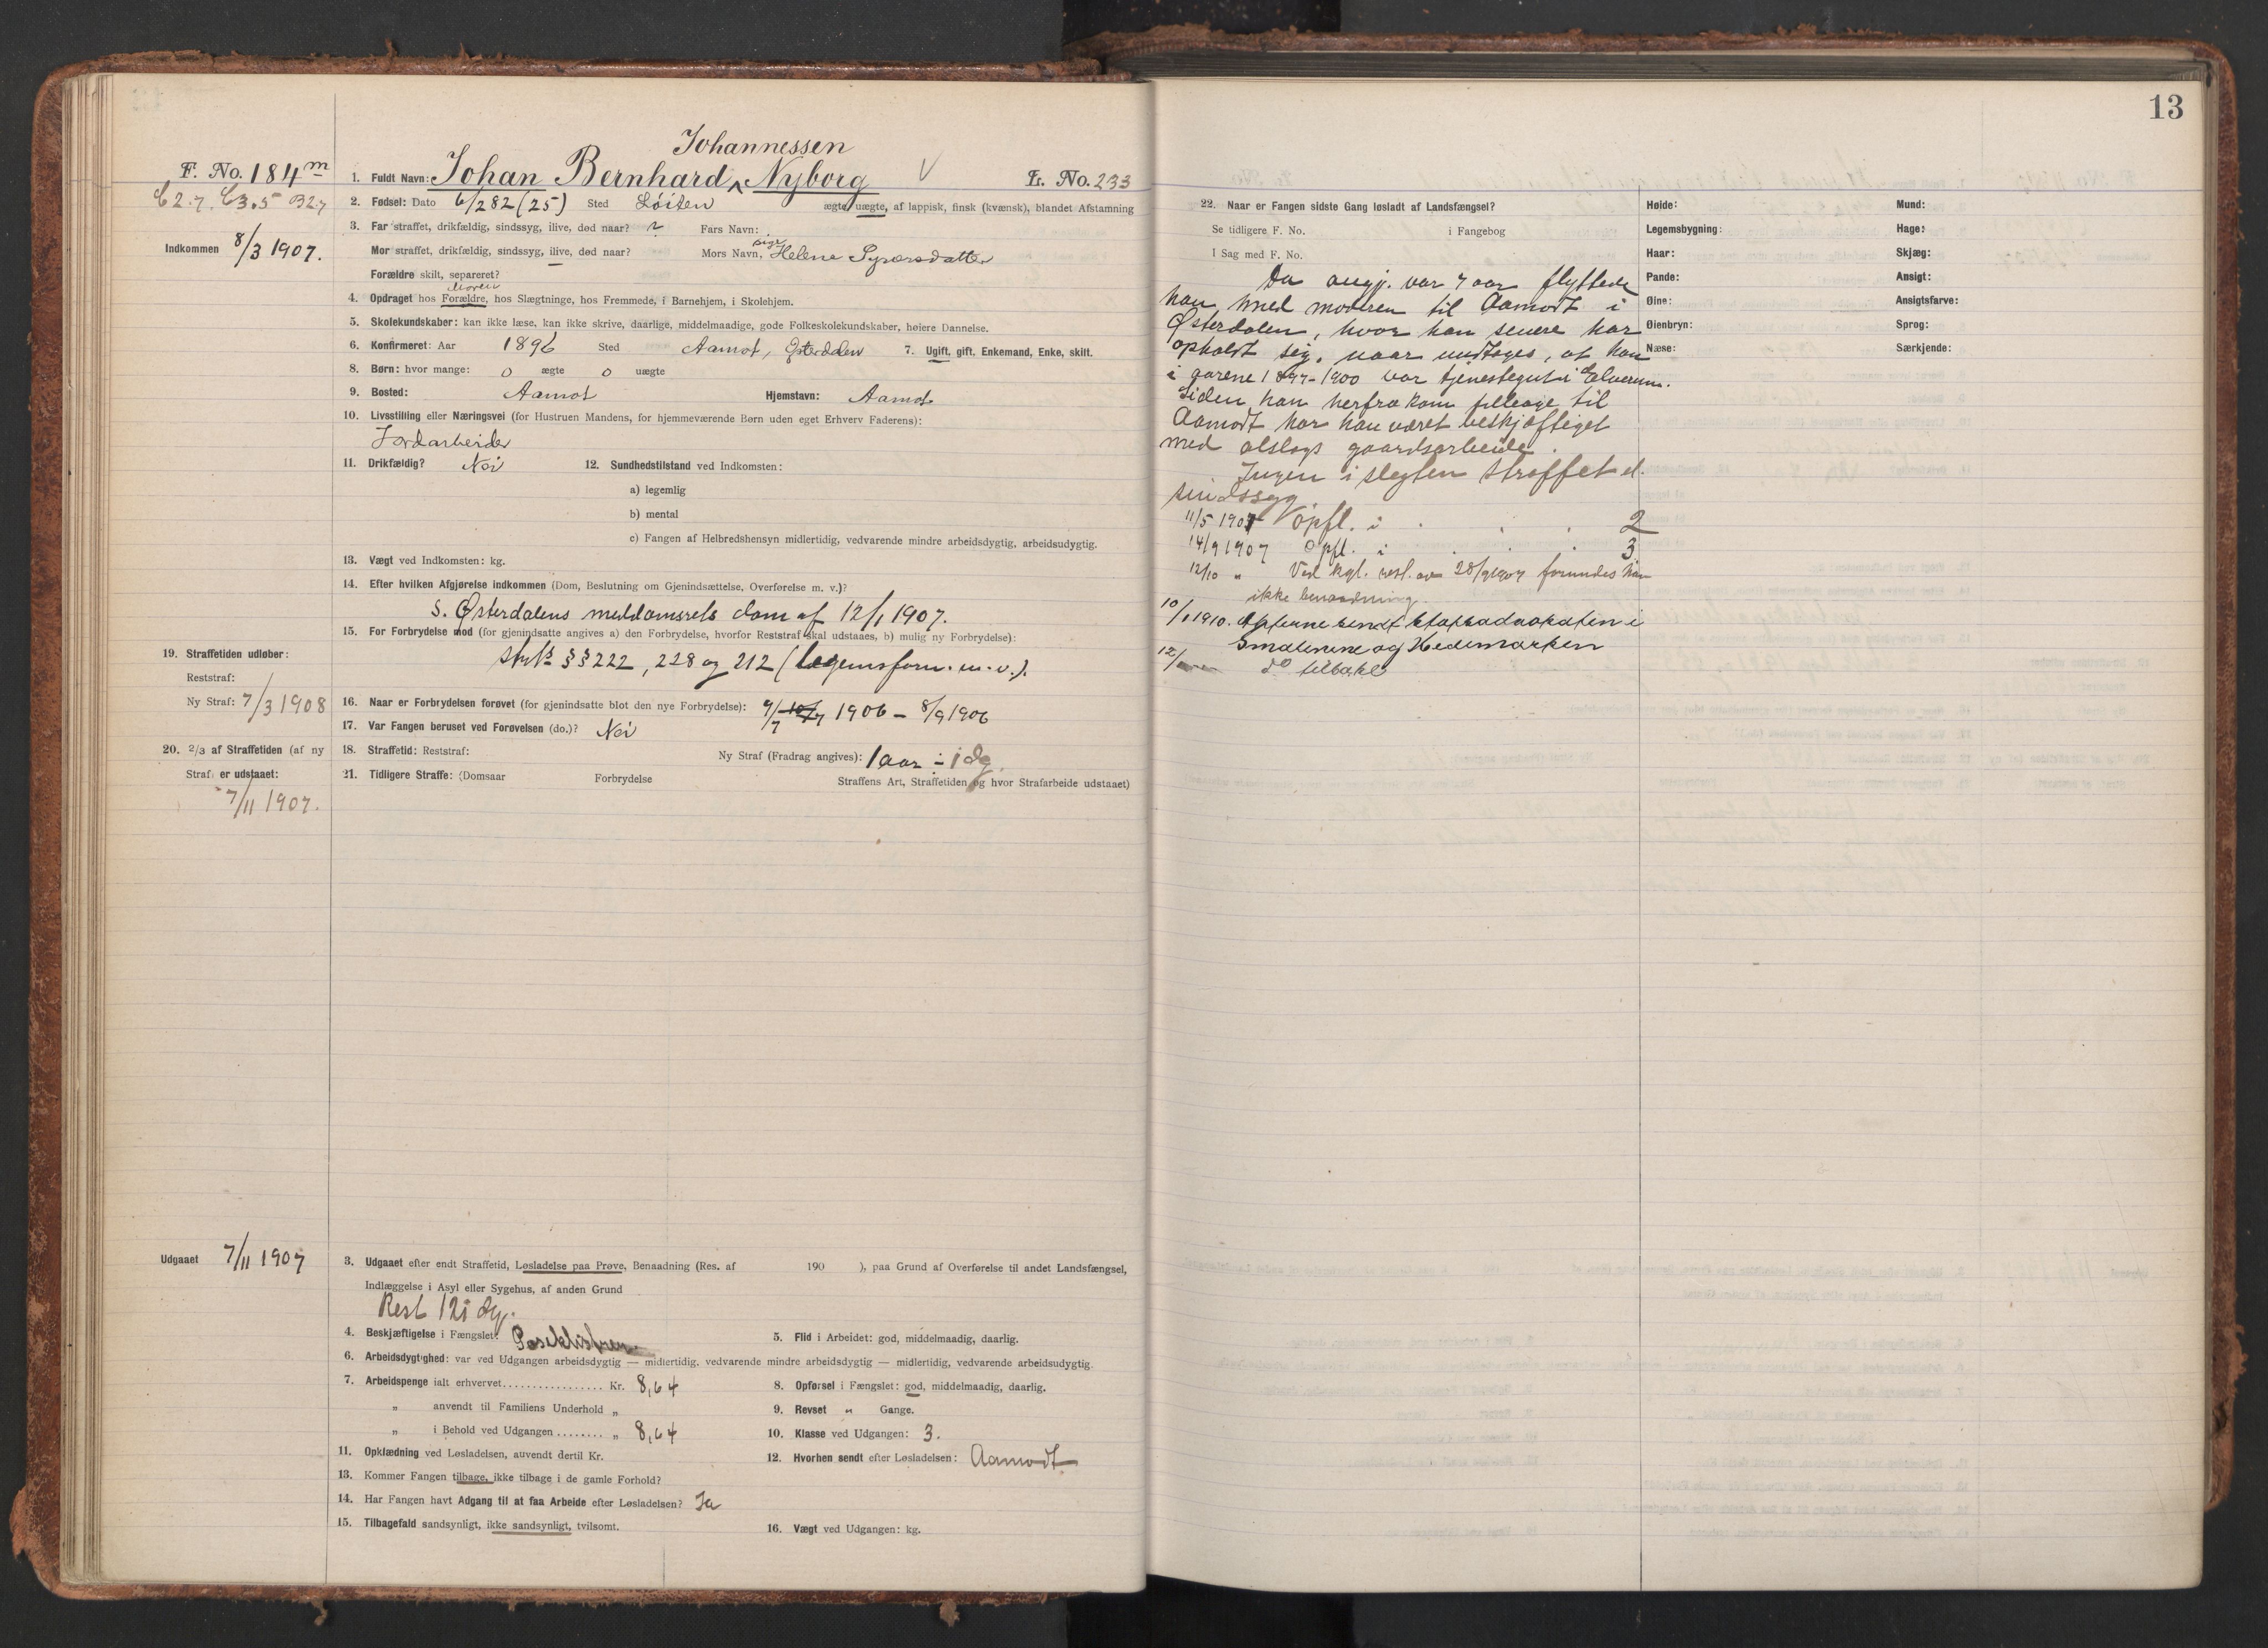 Johannessen
F. No. 184 m
1. Fuldt Navn: Johan Bernhard ^ Nyborg V
L. No. 233
C2.7. C3.5 B27
2. Fødsel: Dato 6/2 82 (25) Sted Löiten ægte, uægte, af lappisk, finsk (kvænsk), blandet Afstamning
Indkommen 8/3 1907.
3. Far straffet, drikfældig, sindssyg, ilive, død naar? ? Fars Navn:
Mor straffet, drikfældig, sindssyg, ilive, død naar? Mors Navn, pige Helene
Forældre skilt, separeret?
Moren
4. Opdraget hos Forældre, hos Slægtninge, hos Fremmede, i Barnehjem, i Skolehjem.
5. Skolekundskaber: kan ikke læse, kan ikke skrive, daarlige, middelmaadige, gode Folkeskolekundskaber, høiere Dannelse.
6. Konfirmeret: Aar 1896 Sted Aamot, Østerdalen 7. Ugift, gift, Enkemand, Enke, skilt.
8. Børn: hvor mange: 0 ægte 0 uægte
9. Bosted: Aamot Hjemstavn: Aamot
10. Livsstilling eller Næringsvei (for Hustruen Mandens, for hjemmeværende Børn uden eget Erhverv Faderens):
Jordarbeider
11. Drikfældig? Nei 12. Sundhedstilstand ved Indkomsten:
a) legemlig
b) mental
c) Fangen af Helbredshensyn midlertidig, vedvarende mindre arbeidsdygtig, arbeidsudygtig.
13. Vægt ved Indkomsten: kg.
14. Efter hvilken Afgjørelse indkommen (Dom, Beslutning om Gjenindsættelse, Overførelse m. v.)?
S. Østerdalens meddomsrets dom af 12/1 1907.
15. For Forbrydelse mod (for gjenindsatte angives a) den Forbrydelse, hvorfor Reststraf skal udstaaes, b) mulig ny Forbrydelse):
19. Straffetiden udløber:
Strl's §§ 222, 228 og 212 (legemsforn. m. v.).
Reststraf:
Ny Straf: 7/3 1908
16. Naar er Forbrydelsen forøvet (for gjenindsatte blot den nye Forbrydelse): 9/7 1906 – 8/9 1906
17. Var Fangen beruset ved Forøvelsen (do.)? Nei
20. 2/3 af Straffetiden (af ny
18. Straffetid: Reststraf: Ny Straf (Fradrag angives): 1 aar ÷ 1 dg.
Straf) er udstaaet:
21. Tidligere Straffe: (Domsaar Forbrydelse Straffens Art, Straffetiden og hvor Strafarbeide udstaaet)
7/11 1907.
Udgaaet 7/11 1907
3. Udgaaet efter endt Straffetid, Løsladelse paa Prøve, Benaadning (Res. af 190 ), paa Grund af Overførelse til andet Landsfængsel,
Indlæggelse i Asyl eller Sygehus, af anden Grund
Rest 121 dg.
4. Beskjæftigelse i Fængslet: Poseklistrer 5. Flid i Arbeidet: god, middelmaadig, daarlig.
6. Arbeidsdygtighed: var ved Udgangen arbeidsdygtig — midlertidig, vedvarende mindre arbeidsdygtig — midlertidig, vedvarende arbeidsudygtig.
7. Arbeidspenge ialt erhvervet................. Kr. 8,64 8. Opførsel i Fængslet: god, middelmaadig, daarlig.
„ anvendt til Familiens Underhold „ 9. Revset „ Gange.
„ i Behold ved Udgangen ........ „ 8,64 10. Klasse ved Udgangen: 3.
11. Opklædning ved Løsladelsen, anvendt dertil Kr. 12. Hvorhen sendt efter Løsladelsen: Aamodt
13. Kommer Fangen tilbage, ikke tilbage i de gamle Forhold?
14. Har Fangen havt Adgang til at faa Arbeide efter Løsladelsen? Ja
15. Tilbagefald sandsynligt, ikke sandsynligt, tvilsomt. 16. Vægt ved Udgangen: kg.
13
22. Naar er Fangen sidste Gang løsladt af Landsfængsel?
Se tidligere F. No. i Fangebog
I Sag med F. No.
Høide: Mund:
Legemsbygning: Hage:
Haar: Skjæg:
Pande: Ansigt:
Øine: Ansigtsfarve:
Øienbryn: Sprog:
Næse: Særkjende:
Da angj. var 7 aar flyttede
han med moderen til Aamodt i
Østerdalen, hvor han senere har
opholdt sig, naar undtages, at han
i aarene 1897-1900 var tjenestegut i Elverum.
Siden han herfra kom tilbage til
Aamodt har han været beskjæftiget
med alslags gaardsarbeide.
Ingen i slegten straffet el.
sindssyg
11/5 1907 Opfl. i . . . 2
14/9 1907 Opfl. i . . . 3
12/10 „ Ved kgl. resl. av 28/9 1907 forundes han
ikke benaadning
10/1 1910. Akterne sendt statsadvokaten i
Smalenene og Hedemarken
12/ do tilbake